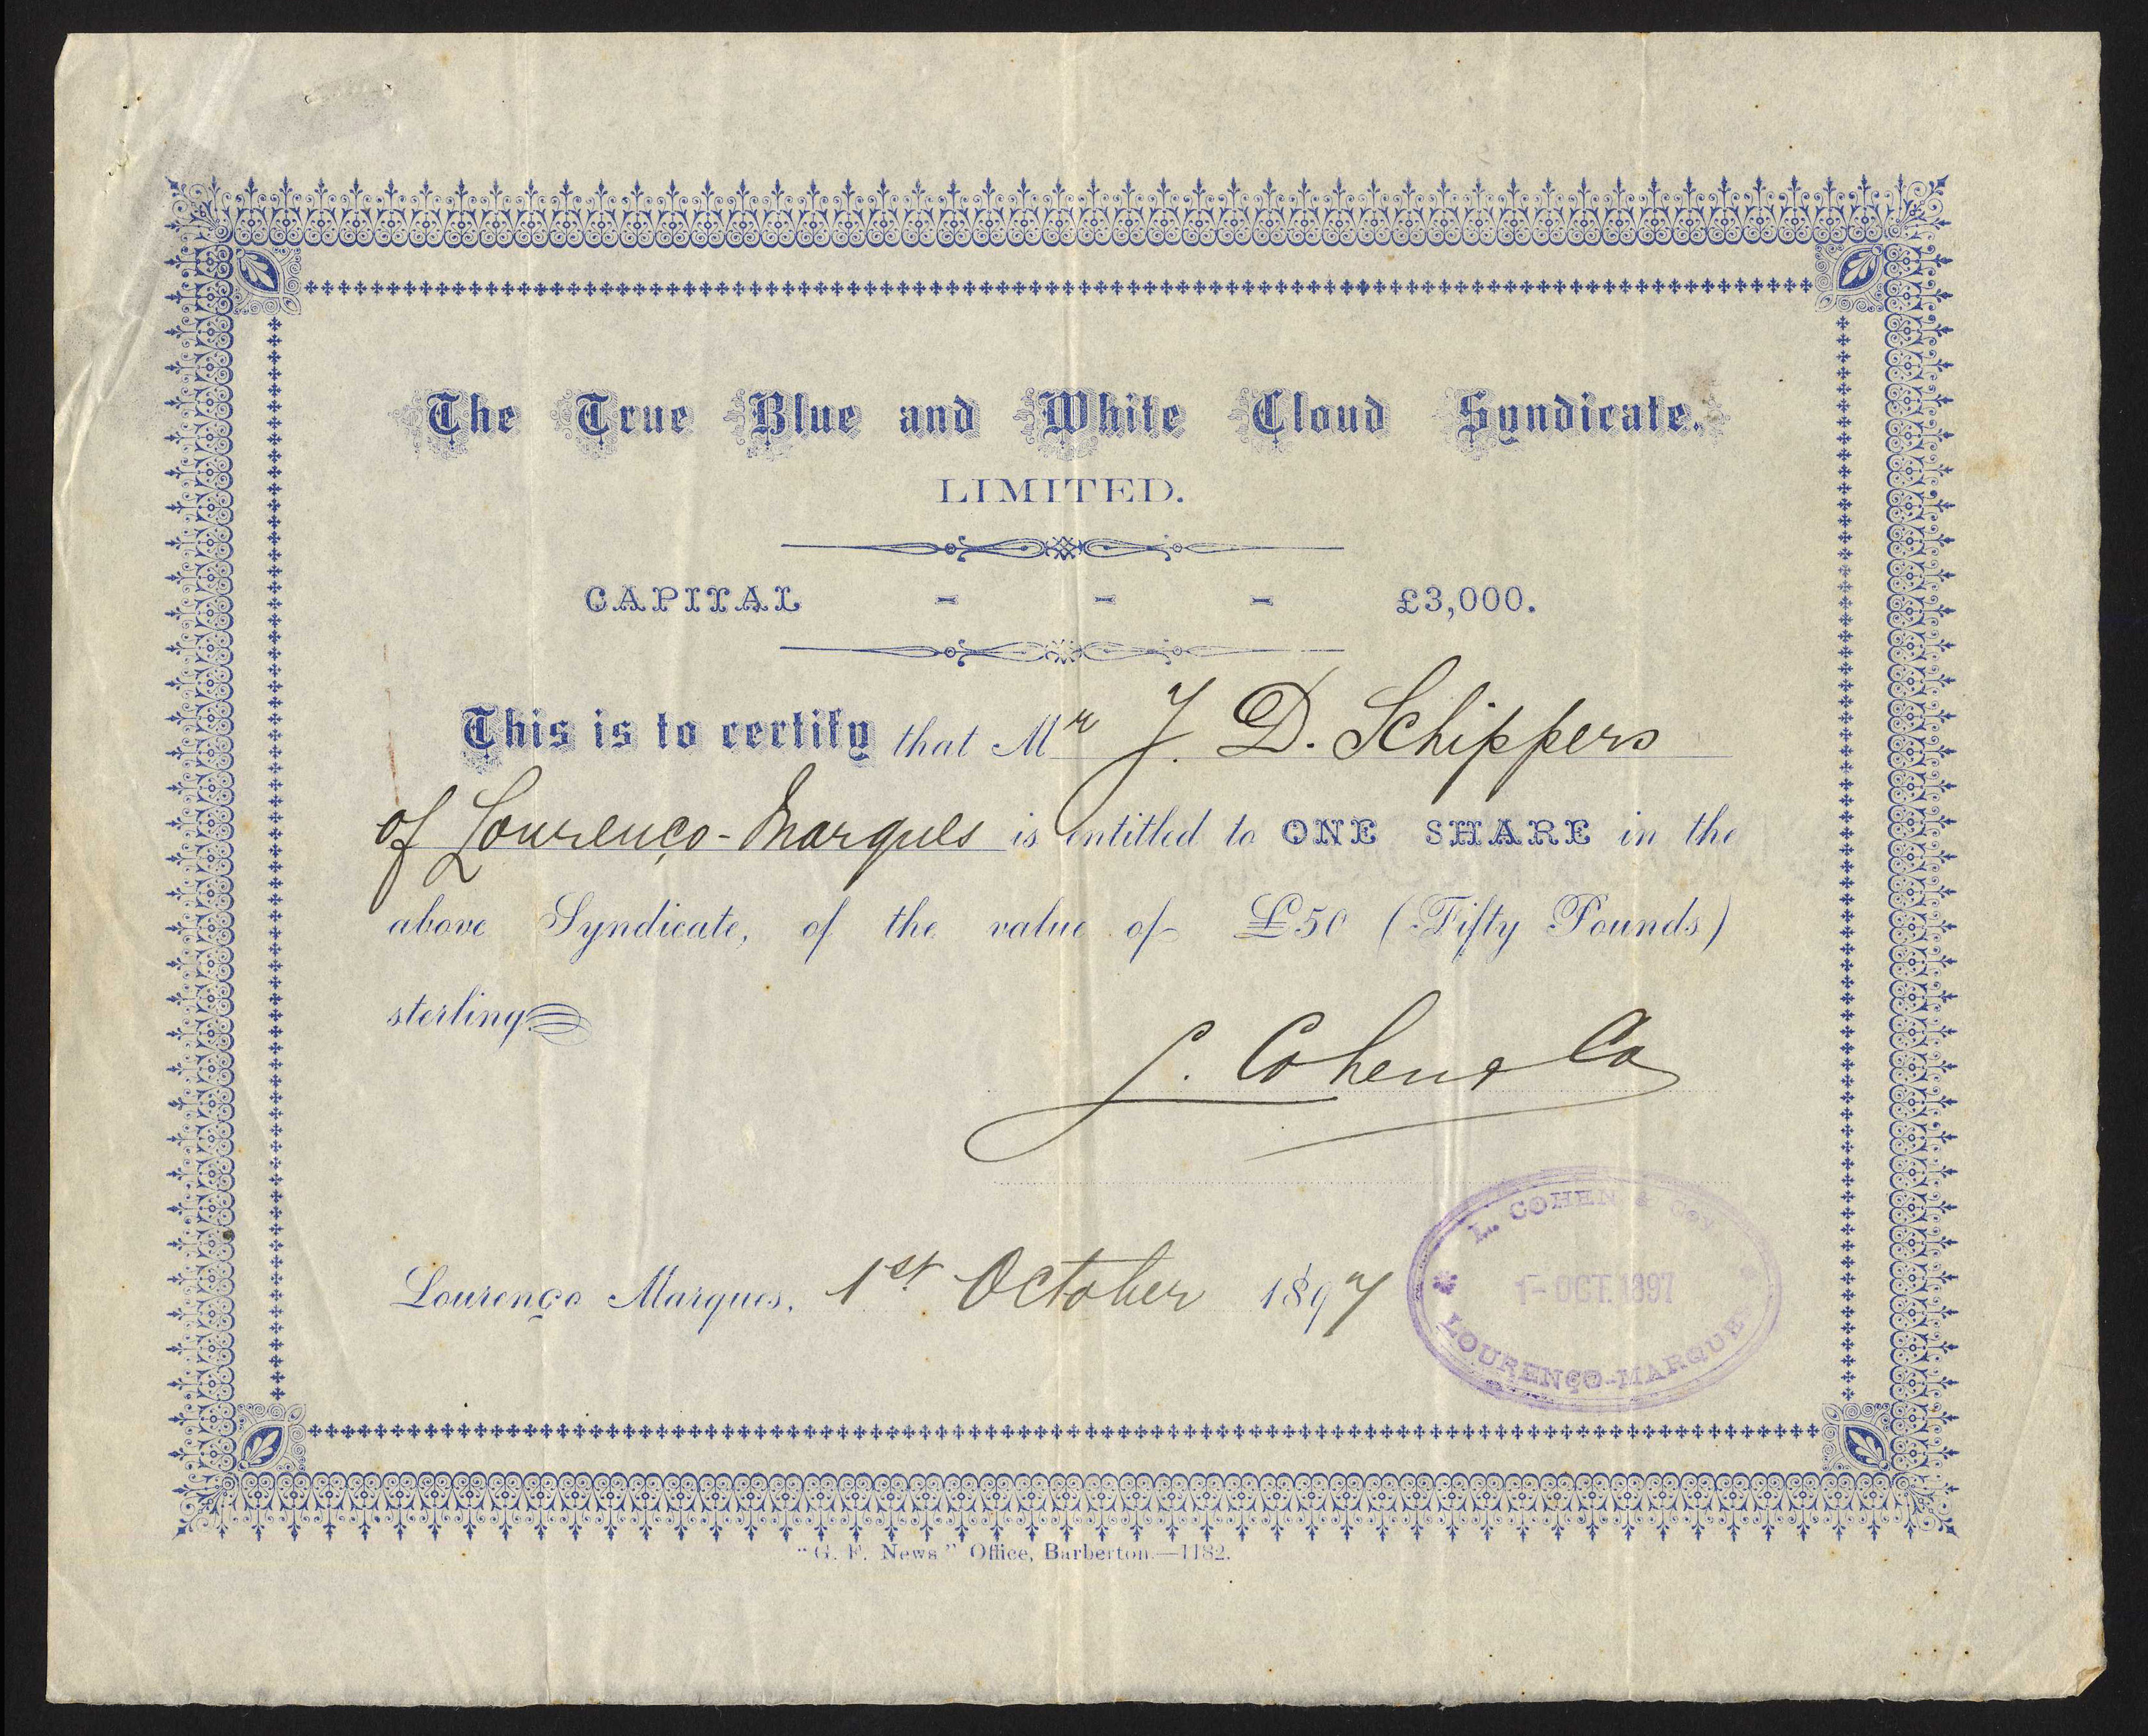 The True Blue and White Cloud Syndicate.
LIMITED.
CAPITAL - - - £3,000.
This is to certify that Mr J. D. Schippers
of Lourenço-Marques is entitled to ONE SHARE in the
above Syndicate, of the value of £50 (Fifty Pounds)
sterling
L. Cohen & Co
Lourenço Marques, 1st October 1897
L. COHEN & Coy
1-OCT. 1897
LOURENÇO-MARQUES
"G. F. News" Office, Barberton.—1182.